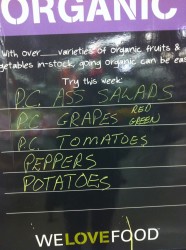 ORGANIC
With over___ varieties of organic fruits &
vegetables in-stock, going organic can be easy
Try this week
P.C. ASS SALADS
P.C GRAPES RED GREEN
P.C. TOMATOES
PEPPERS
POTATOES
WE LOVE FOOD